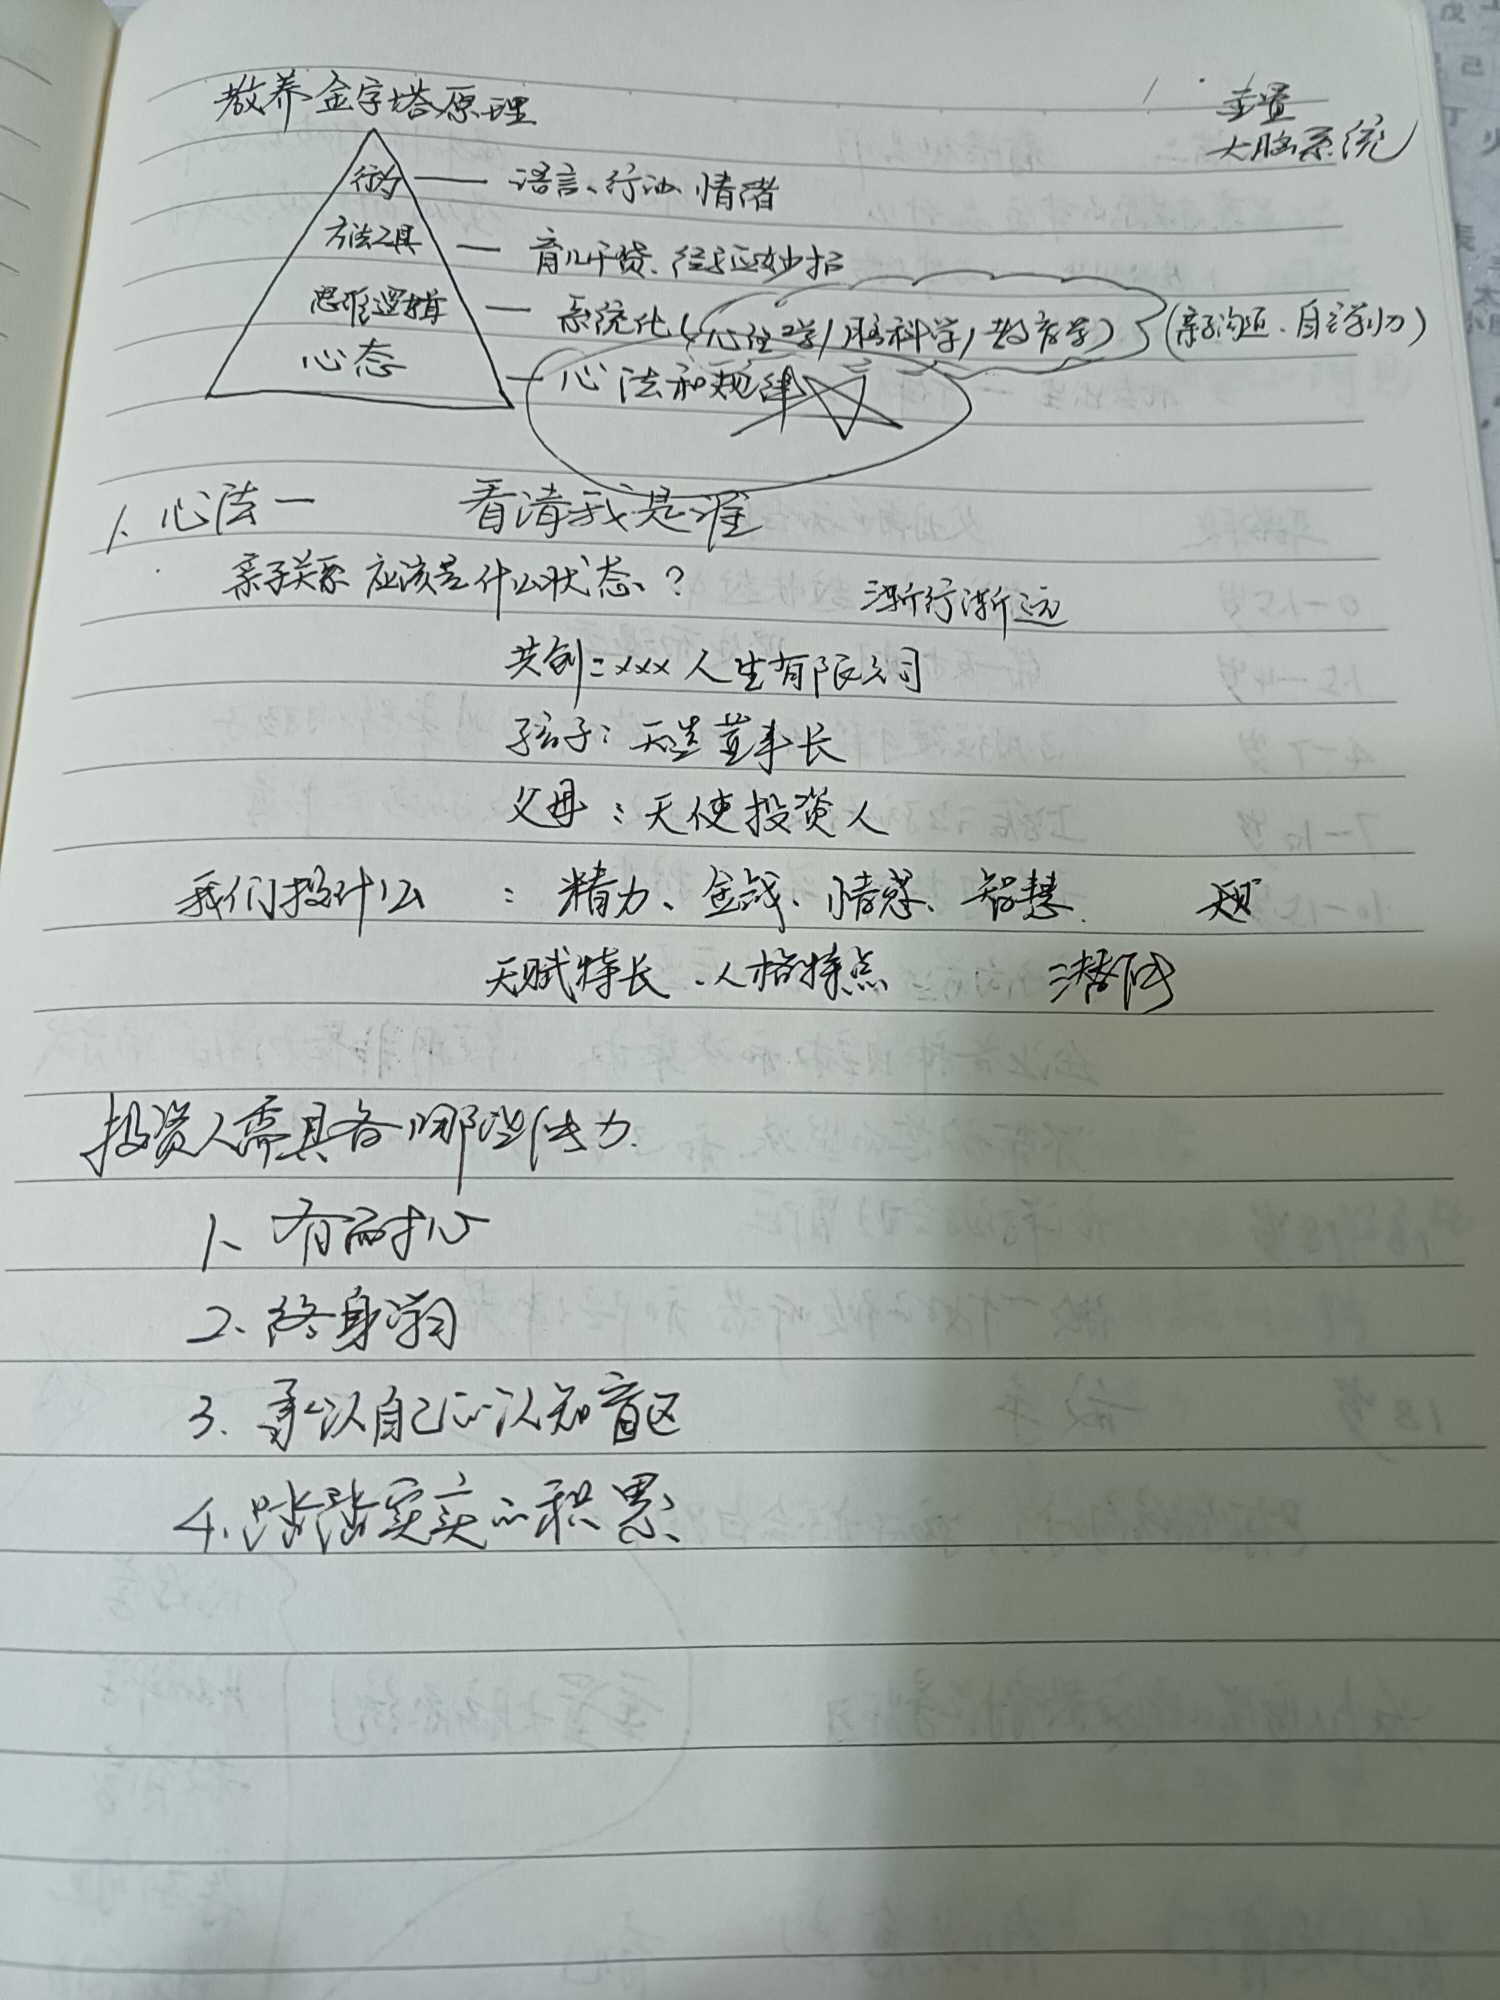 教养金字塔原理
重置
大脑系统
行为 — 语言、行动、情绪
方法工具 — 育儿干货、经验妙招
思维逻辑 — 系统化(心理学/脑科学/教育学) (亲子沟通、自主学习力)
心态 — 心法和规律
1、心法一 看清我是谁
亲子关系应该是什么状态、? 渐行渐远
共创:xxx人生有限公司
孩子:天选董事长
父母:天使投资人
我们投什么 :精力、金钱、情感、智慧. 天赋
天赋特长、人格特点 潜能
投资人需具备哪些能力.
1、有耐心
2、终身学习
3、承认自己的认知盲区
4、踏踏实实的积累